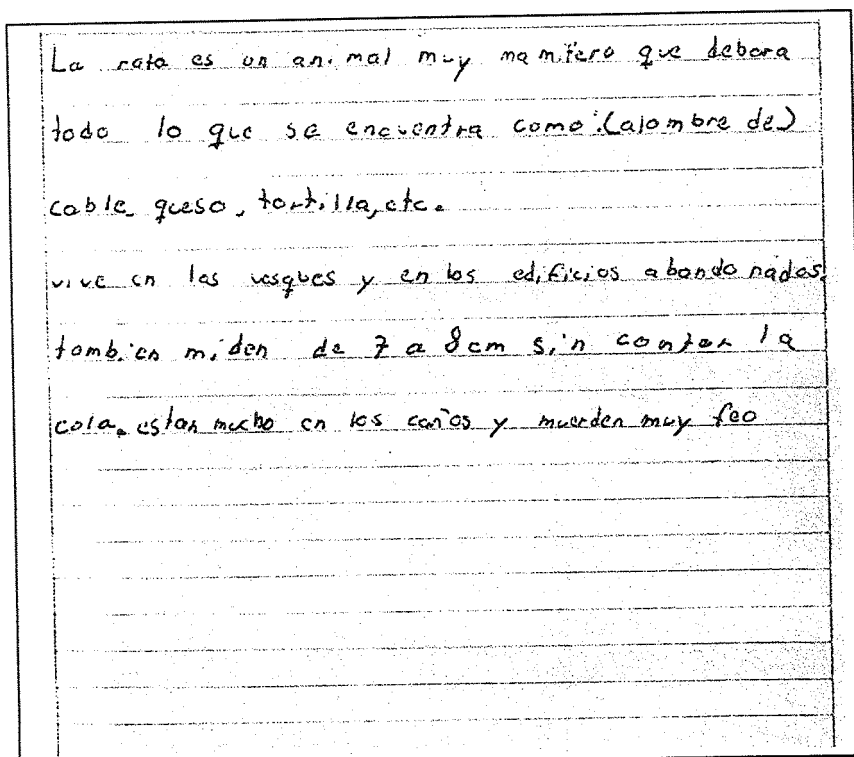 La rata es un animal muy mamifero que debora
todo lo que se encuentra como:(alombre de)
cable queso, tortilla, etc.
vive en los vosques y en los edificios abandonados.
tambien miden de 7 a 8cm sin contar la
cola. estan mucho en los caños y muerden muy feo